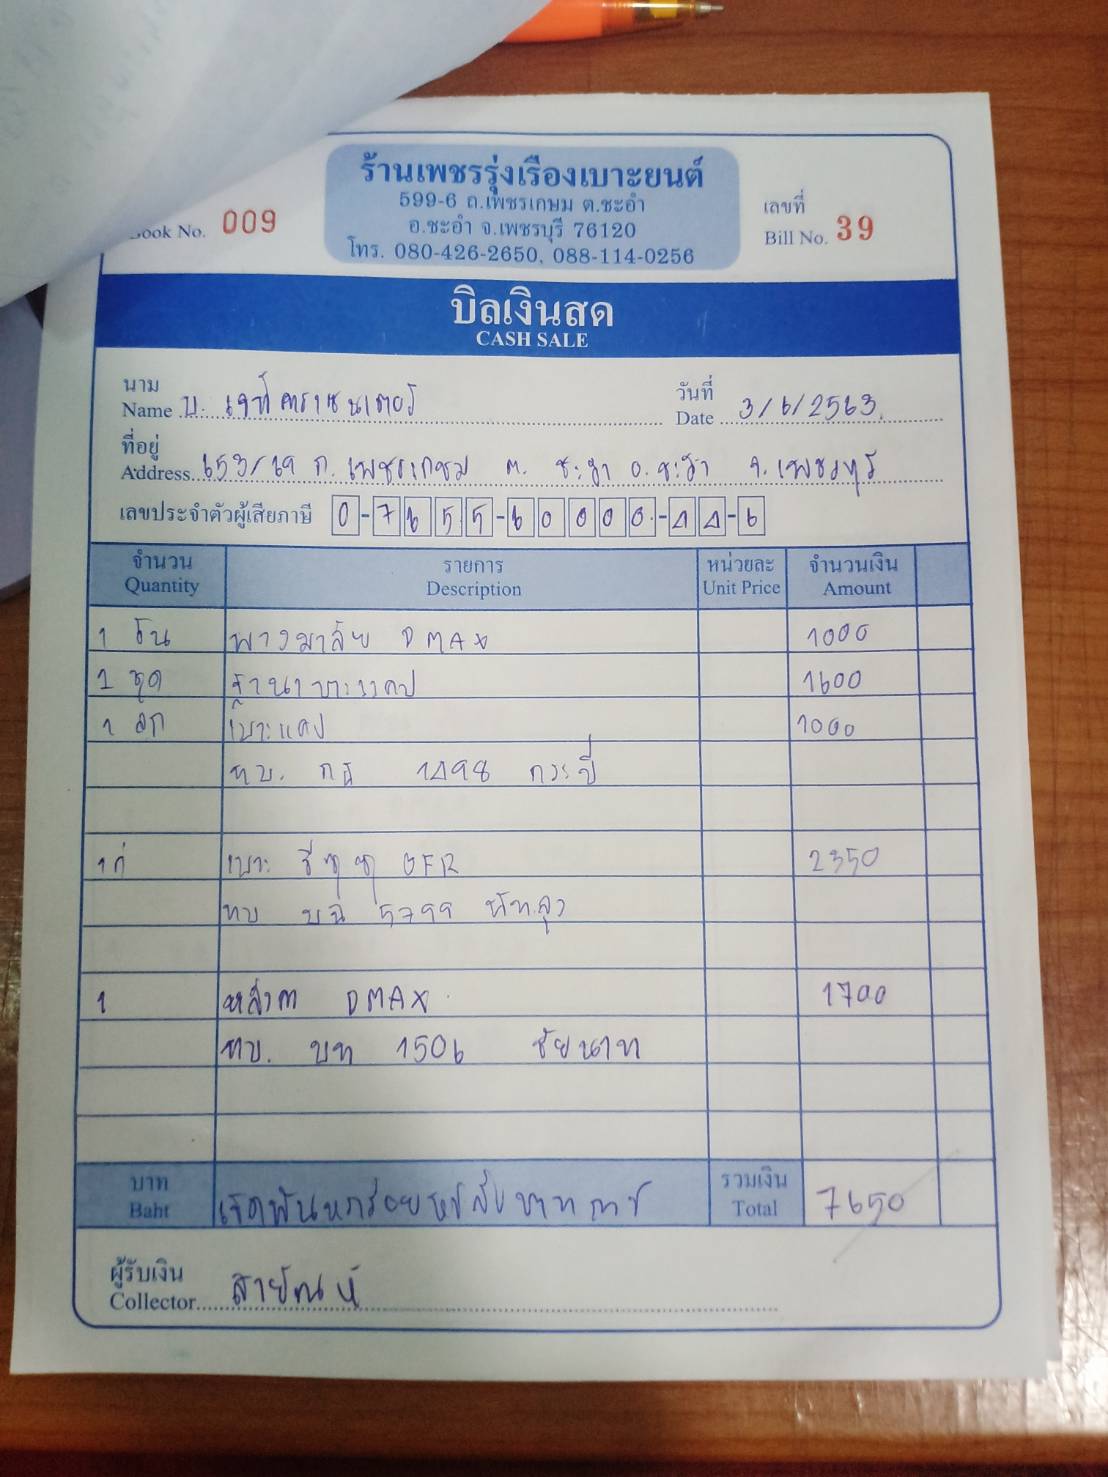 ร้านเพชรรุ่งเรืองเบาะยนต์
599-6 ถ.เพชรเกษม ต.ชะอำ
อ.ชะอำ จ.เพชรบุรี 76120
โทร. 080-426-2650, 088-114-0256
Book No. 009
เลขที่
Bill No. 39
บิลเงินสด
CASH SALE
นาม
Name บ.
วันที่
Date 3/6/2563
ที่อยู่
Address 653/19 ถ. เพชรเกษม ต. ชะอำ อ. ชะอำ จ. เพชรบุรี
เลขประจำตัวผู้เสียภาษี 0-7655-60000-44-6
จำนวน รายการ หน่วยละ จำนวนเงิน
Quantity Description Unit Price Amount
1 พวงมาลัย DMAX 1000
1 ชุด 1600
1 ลูก เบาะแคป 1000
ทบ. 1498 กระบี่
1 คู่ เบาะ อีซูซุ GFR 2350
ทบ 5799 พัทลุง
1 หลังคา DMAX 1700
ทบ. บท 1506 ชัยนาท
บาท
Baht เจ็ดพันหกร้อยห้าสิบบาท
รวมเงิน
Total 7650
ผู้รับเงิน
Collector สายัณห์